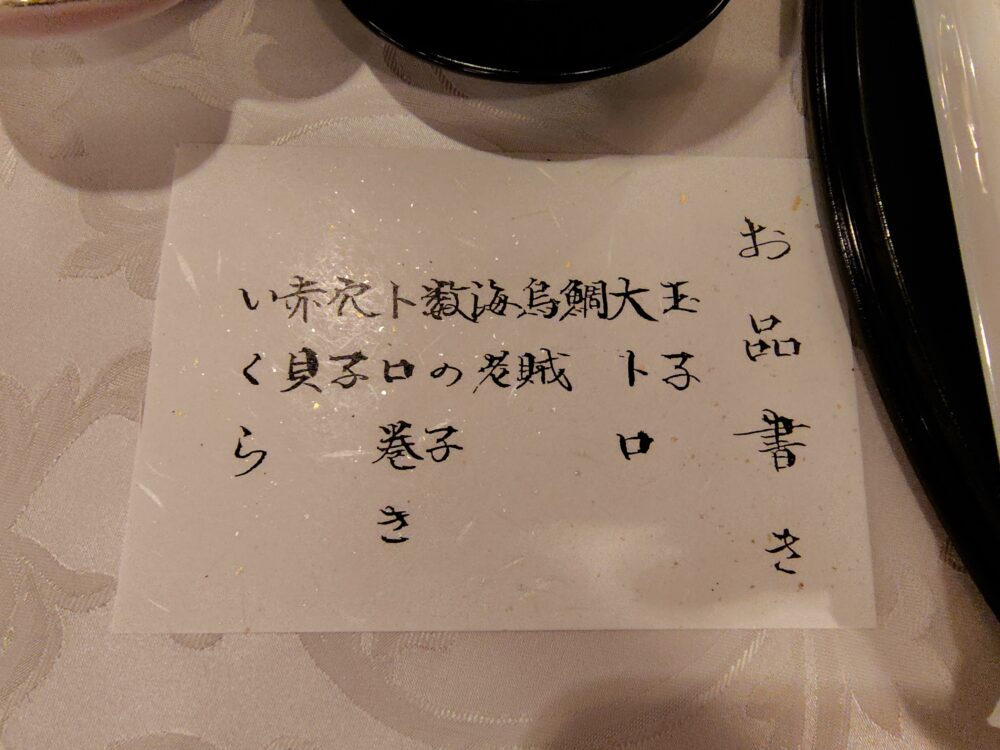 お品書き
玉子
大トロ
鯛
烏賊
海老
数の子
トロ巻き
穴子
赤貝
いくら